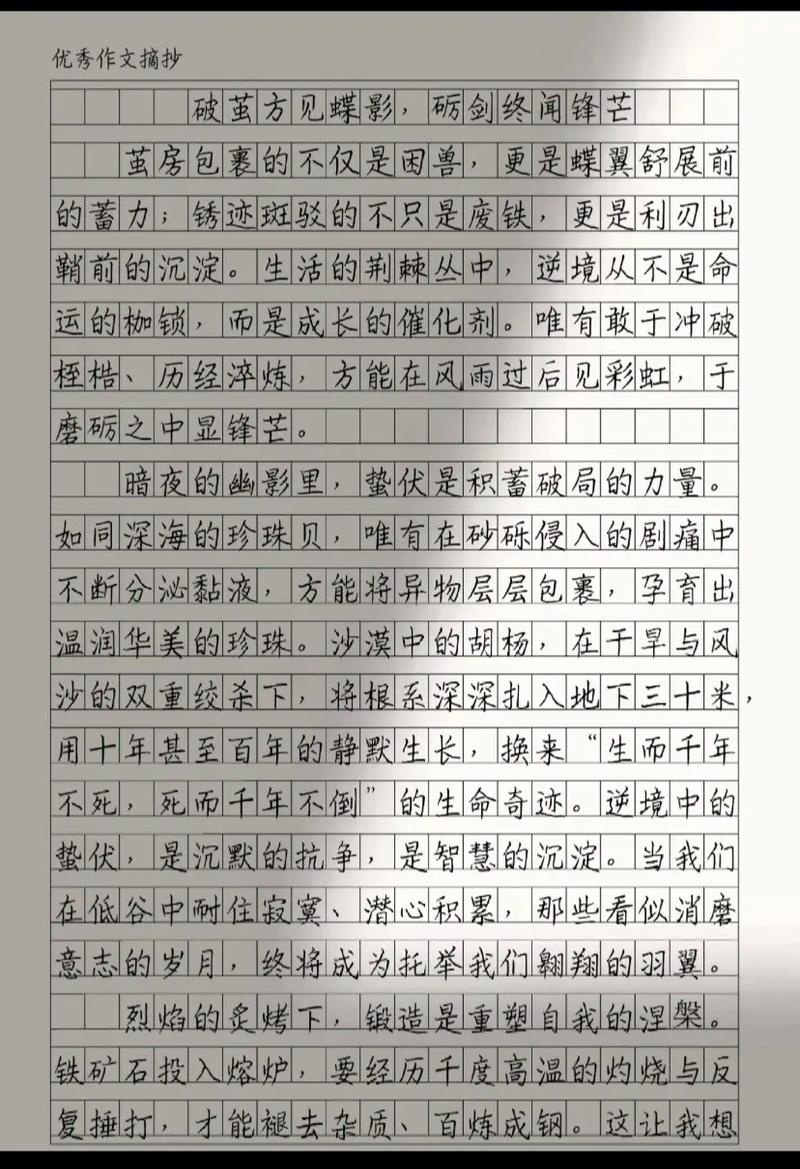 优秀作文摘抄
破茧方见蝶影，砺剑终闻锋芒
茧房包裹的不仅是困兽，更是蝶翼舒展前
的蓄力；锈迹斑驳的不只是废铁，更是利刃出
鞘前的沉淀。生活的荆棘丛中，逆境从不是命
运的枷锁，而是成长的催化剂。唯有敢于冲破
桎梏、历经淬炼，方能在风雨过后见彩虹，于
磨砺之中显锋芒。
暗夜的幽影里，蛰伏是积蓄破局的力量。
如同深海的珍珠贝，唯有在砂砾侵入的剧痛中
不断分泌黏液，方能将异物层层包裹，孕育出
温润华美的珍珠。沙漠中的胡杨，在干旱与风
沙的双重绞杀下，将根系深深扎入地下三十米，
用十年甚至百年的静默生长，换来“生而千年
不死，死而千年不倒”的生命奇迹。逆境中的
蛰伏，是沉默的抗争，是智慧的沉淀。当我们
在低谷中耐住寂寞、潜心积累，那些看似消磨
意志的岁月，终将成为托举我们翱翔的羽翼。
烈焰的炙烤下，锻造是重塑自我的涅槃。
铁矿石投入熔炉，要经历千度高温的灼烧与反
复捶打，才能褪去杂质、百炼成钢。这让我想